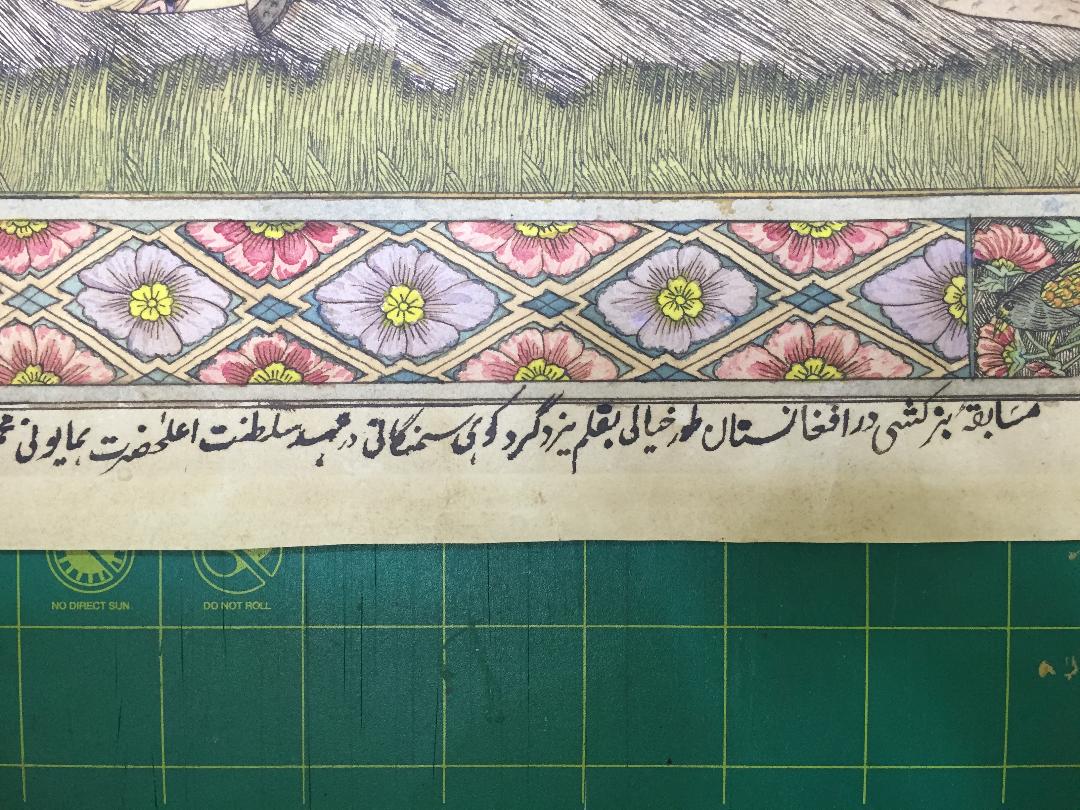 مسابقهٔ بزکشی در افغانستان طور خیالی بقلم یزدگرد کوی سمنگانی در عهد سلطنت اعلیٰحضرت همایونی
NO DIRECT SUN
DO NOT ROLL